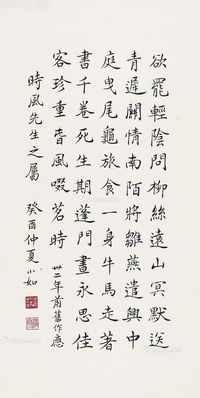 欲罷輕陰問柳絲遠山冥默送
青遲關情南陌將雛燕遣興中
庭曳尾龜旅食一身牛馬走著
書千卷死生期蓬門晝永思佳
客珍重風啜茗時 卅二年前舊作應
時風先生之屬 癸酉仲夏小如